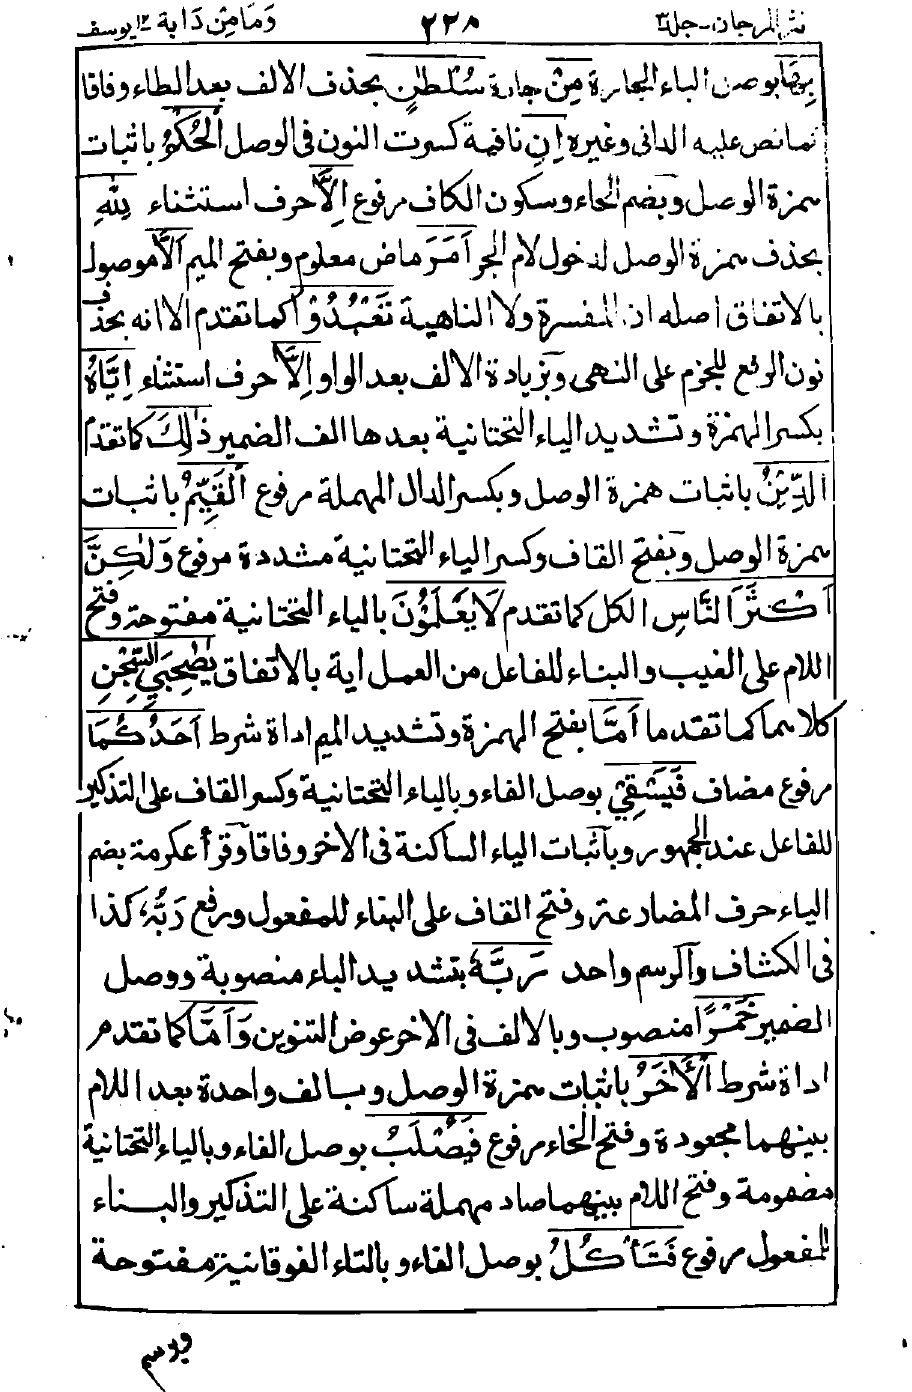 نثر المرجان-جلد٣ ٢٢٨ وَمَا مِنْ دَابة ١٢ يوسف
بِهَا بوصل الباء الجارة مِنْ جارة سُلْطٰنٍ بحذف الالف بعد الطاء وفاقا
لما نص عليه الدانى وغيره اِنِ نافية كسرت النون فى الوصل الْحُكْمُ باثبات
همزة الوصل وبضم الحاء وسكون الكاف مرفوع اِلَّا حرف استثناء لِلّٰهِ
بحذف همزة الوصل لدخول لام الجر اَمَرَ ماض معلوم وبفتح الميم اَلَّا موصول
بالاتفاق اصله ان المفسرة ولا الناهية تَعْبُدُوْٓا كما تقدم الا انه بحذف
نون الرفع للجزم على النهى وبزيادة الالف بعد الواو اِلَّا حرف استثناء اِيَّاهُ
بكسر الهمزة وتشديد الياء التحتانية بعدها الف الضمير ذٰلِكَ كما تقدم
الدِّيْنُ باثبات همزة الوصل وبكسر الدال المهملة مرفوع الْقَيِّمُ باثبات
همزة الوصل وبفتح القاف وكسر الياء التحتانية مشددة مرفوع وَلٰكِنَّ
اَكْثَرَ النَّاسِ الكل كما تقدم لَا يَعْلَمُوْنَ بالياء التحتانية مفتوحة وفتح
اللام على الغيب والبناء للفاعل من العمل اية بالاتفاق يٰصٰحِبَيِ السِّجْنِ
كلاهما كما تقدما اَمَّا بفتح الهمزة وتشديد الميم اداة شرط اَحَدُكُمَا
مرفوع مضاف فَيَسْقِيْ بوصل الفاء وبالياء التحتانية وكسر القاف على التذكير
للفاعل عند الجمهور وباثبات الياء الساكنة فى الاخر وفاقا وقرأ عكرمة بضم
الياء حرف المضارعة وفتح القاف على البناء للمفعول ورفع رَبُّهُ، كذا
فى الكشاف والرسم واحد رَبَّهٗ بتشديد الباء منصوبة ووصل
الضمير خَمْرًا منصوب وبالالف فى الاخر عوض التنوين وَاَمَّا كما تقدم
اداة شرط الْاٰخَرُ باثبات همزة الوصل وبالف واحدة بعد اللام
بينهما مجعودة وفتح الخاء مرفوع فَيُصْلَبُ بوصل الفاء وبالياء التحتانية
مضمومة وفتح اللام بينهما صاد مهملة ساكنة على التذكير والبناء
للمفعول مرفوع فَتَأْكُلُ بوصل الفاء وبالتاء الفوقانية مفتوحة